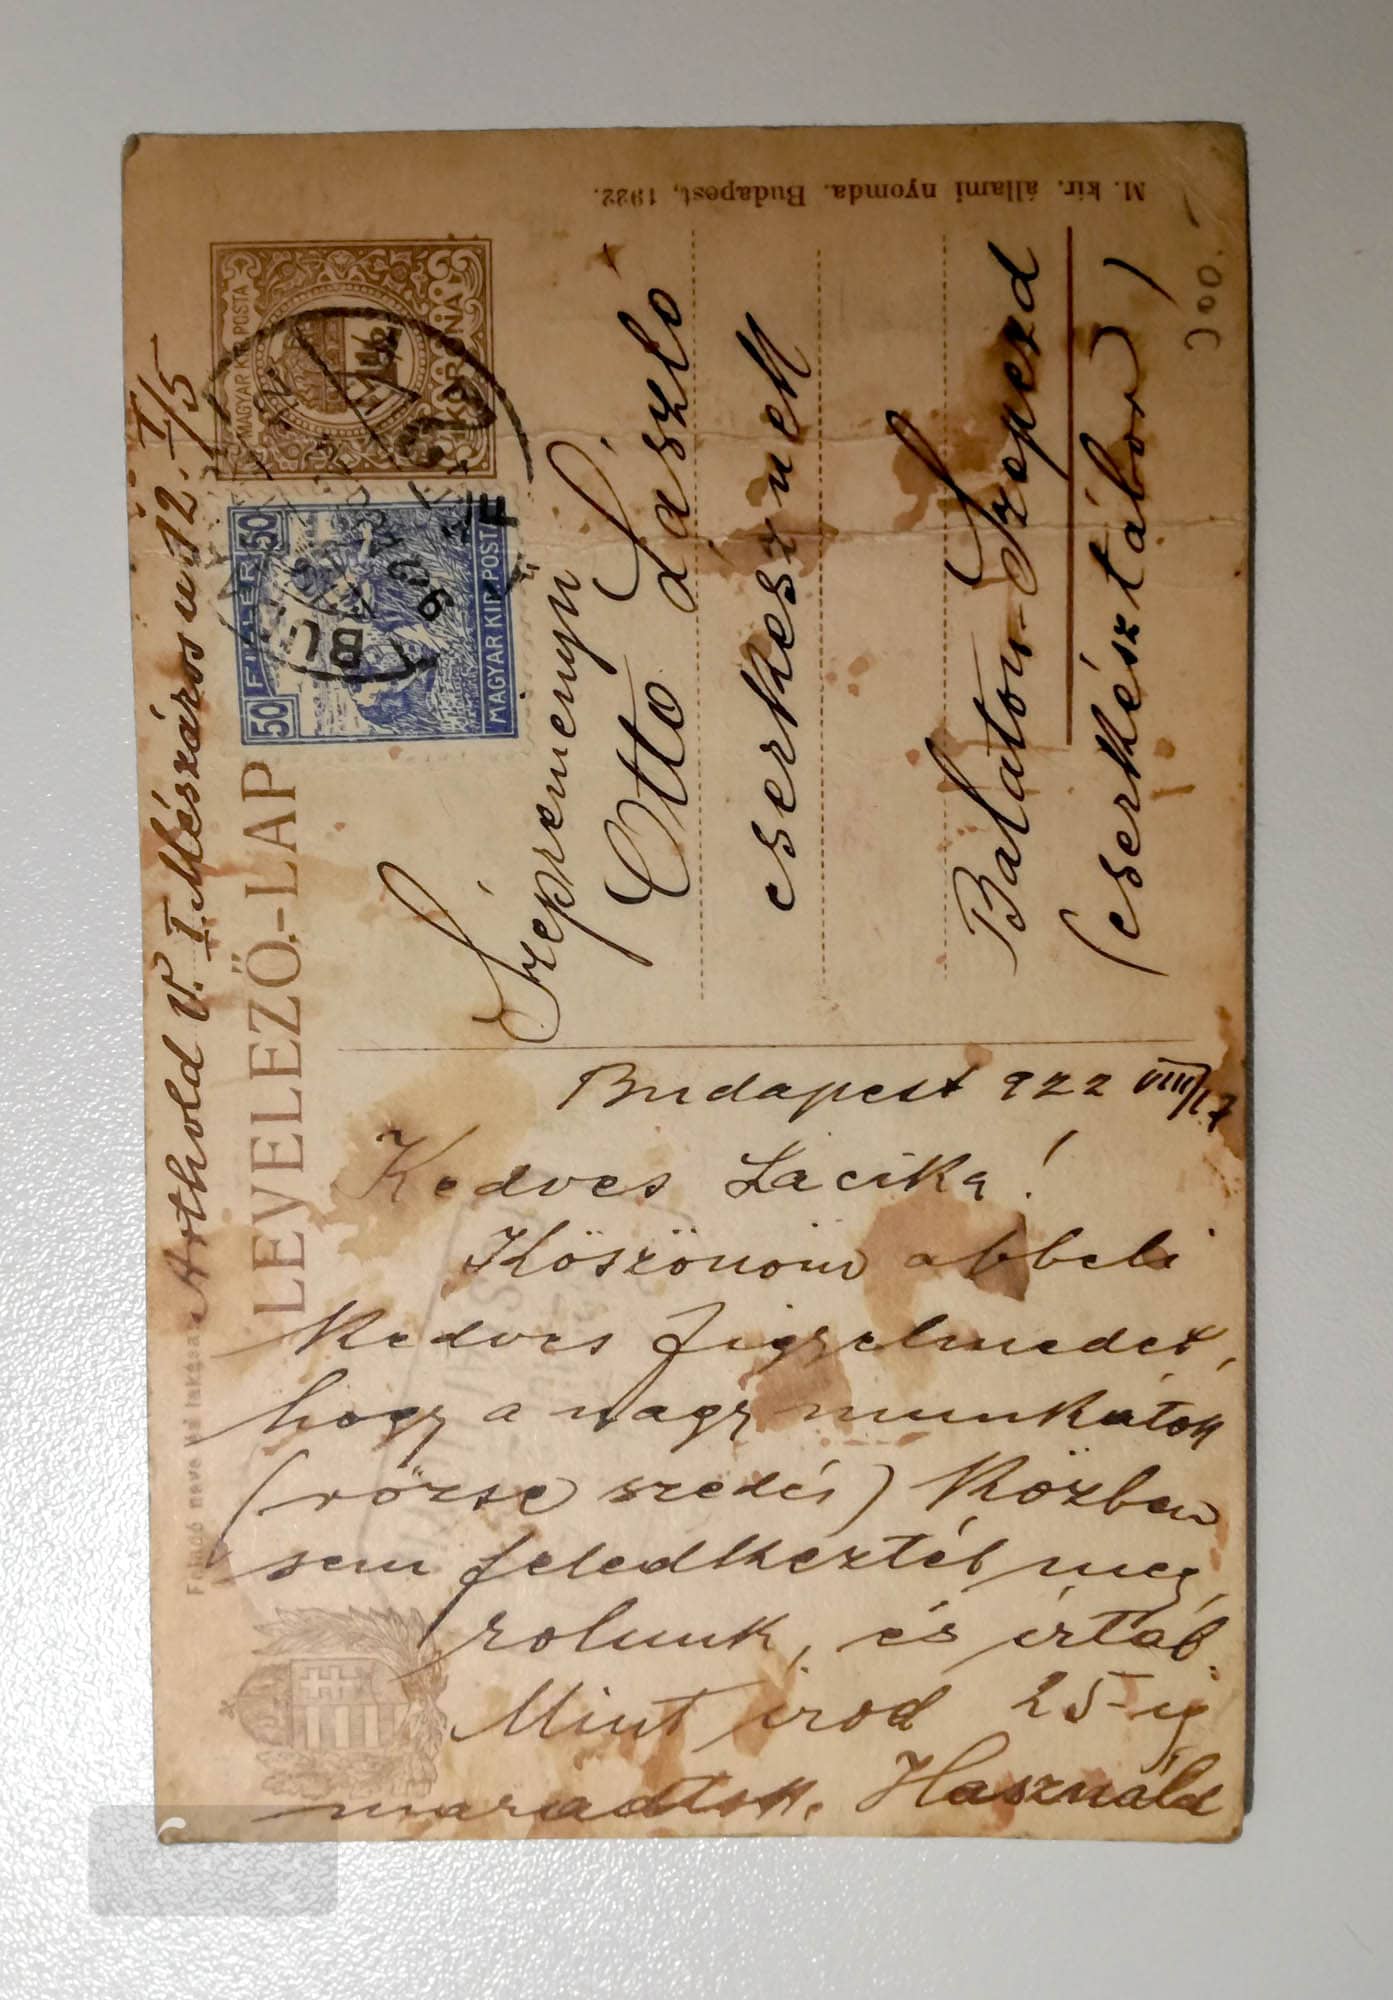 M. kir. állami nyomda. Budapest, 1922.
300.-
Arthold V. I. Mészáros u 12. I/5
LEVELEZŐ-LAP
MAGYAR KIR. POSTA
KORONA
50 FILLÉR 50
MAGYAR KIR. POSTA
BU
Szépreményű
Ottó László
cserkésznek
Balaton-Szepezd
(cserkésztábor)
Budapest 922 VIII/17
Kedves Lacika!
Köszönöm abbeli
kedves figyelmedet,
hogy a nagy munkátok
(rőzse szedés) közben
sem feledkeztél meg
rolunk, és írtál.
Mint irod 25-ig
maradtok. Használd
Feladó neve és lakása: